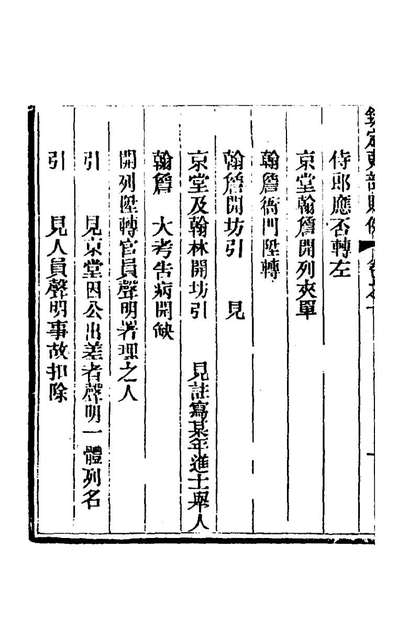 欽定吏部則例
侍郎應否轉左
京堂翰詹開列夾單
翰詹衙門陞轉
翰詹開坊引　見
京堂及翰林開坊引　見註寫某年進士舉人
翰詹　大考告病開缺
開列陞轉官員聲明署理之人
引　見京堂因公出差者聲明一體列名
引　見人員聲明事故扣除